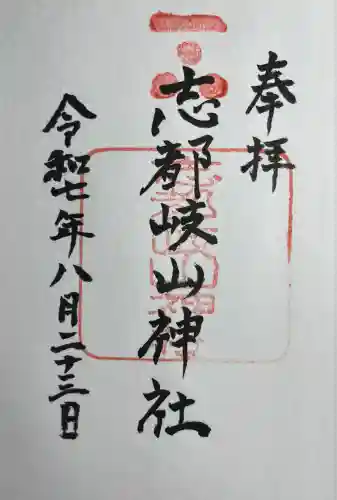 奉拝
志都岐山神社
令和七年八月二十三日